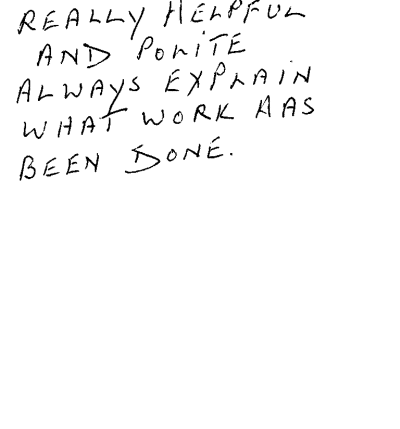 REALLY HELPFUL
AND POLITE
ALWAYS EXPLAIN
WHAT WORK HAS
BEEN DONE.